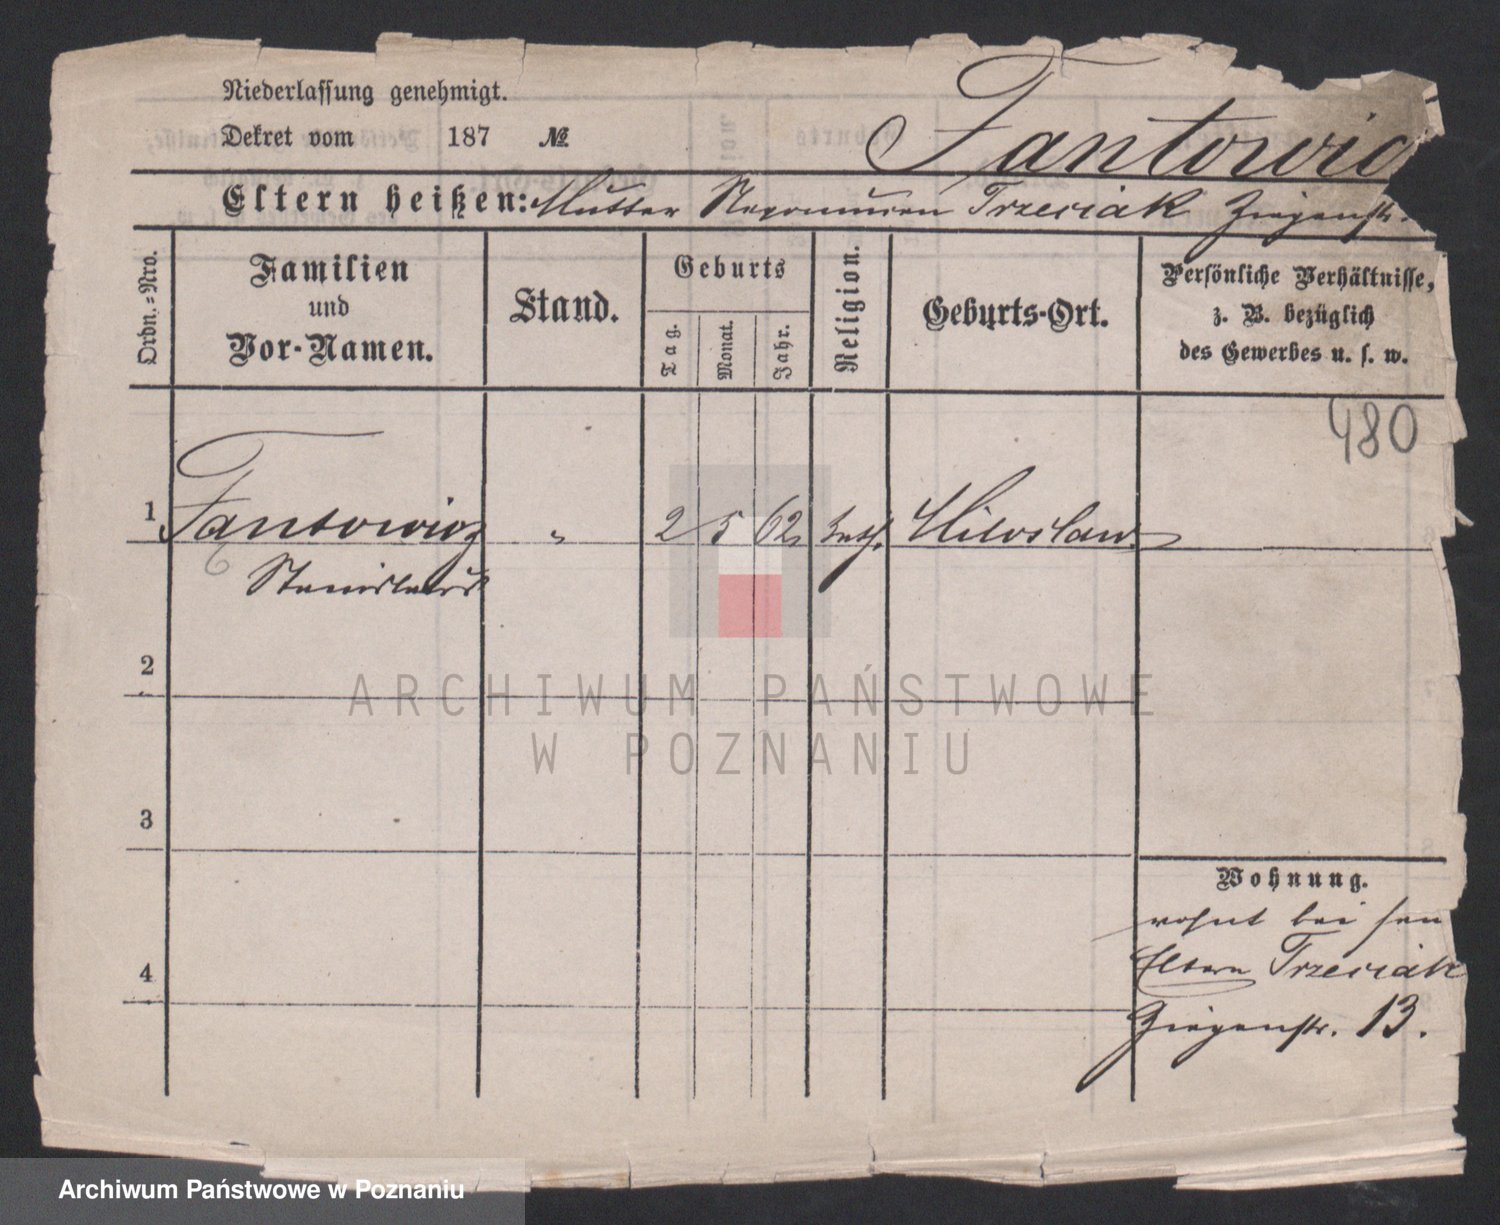 Niederlassung genehmigt.
Dekret vom 187 №
Fantowic
Eltern heißen: Mutter Trzeciak Ziegenstr.
Ordn.-Nro.
Familien
und
Vor-Namen.
Stand.
Geburts
Tag.
Monat.
Jahr.
Religion.
Geburts-Ort.
Persönliche Verhältnisse,
z. B. bezüglich
des Gewerbes u. s. w.
480
1 Fantowicz " 2 5 62 kath. Miloslaw
6
Stanislaus
2
3
4
Wohnung.
wohnt bei sein
Eltern Trzeciak
Ziegenstr. 13.
ARCHIWUM PAŃSTWOWE
W POZNANIU
Archiwum Państwowe w Poznaniu